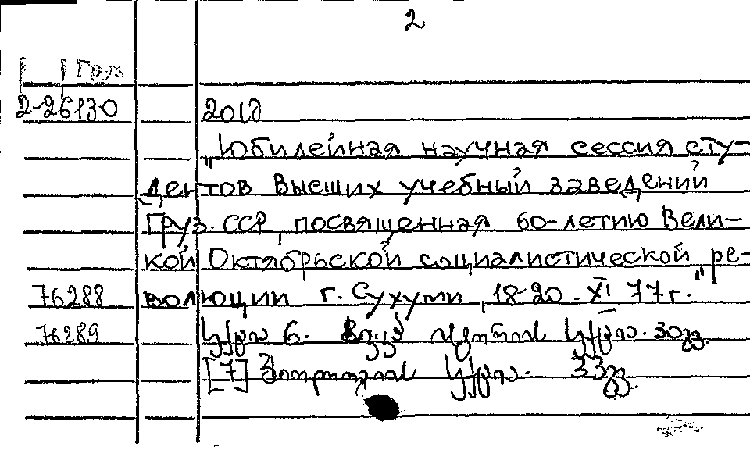 2
Груз
2-26130 2018
"Юбилейная научная сессия сту-
дентов Высших учебный заведений
Груз. ССР, посвященная 60-летию Вели-
кой Октябрьской социалистической "ре-
76288 волюции г. Сухуми, 18-20. XI 77 г.
76289 6. 30გვ.
[7] 33გვ.